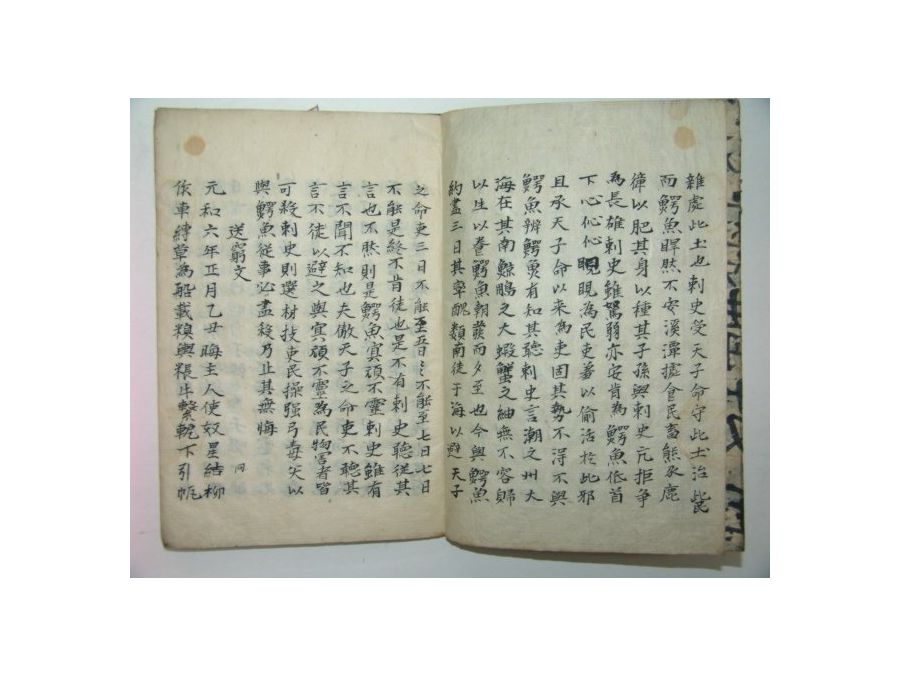 雜處此土也刺史受天子命守此土治此民
而鰐魚睅然不安溪潭據食民畜熊豕鹿
獐以肥其身以種其子孫與刺史亢拒爭
為長雄刺史雖駑弱亦安肯為鰐魚低首
下心伈伈睍睍為民吏羞以偷活於此邪
且承天子命以來為吏固其勢不得不與
鰐魚辨鰐魚有知其聽刺史言潮之州大
海在其南鯨鵬之大蝦蟹之細無不容歸
以生以養鰐魚朝發而夕至也今與鰐魚
約盡三日其率醜類南徙于海以避天子
之命吏三日不能至五日〻不能至七日七日
不能是終不肯徙也是不有刺史聽從其
言也不然則是鰐魚冥頑不靈刺史雖有
言不聞不知也夫傲天子之命吏不聽其
言不徙以避之與冥頑不靈為民物害者皆
可殺刺史則選材技吏民操强弓毒矢以
與鰐魚從事必盡殺乃止其無悔
送窮文 同
元和六年正月乙丑晦主人使奴星結柳
作車縛草為船載糗輿粻牛繫軛下引帆